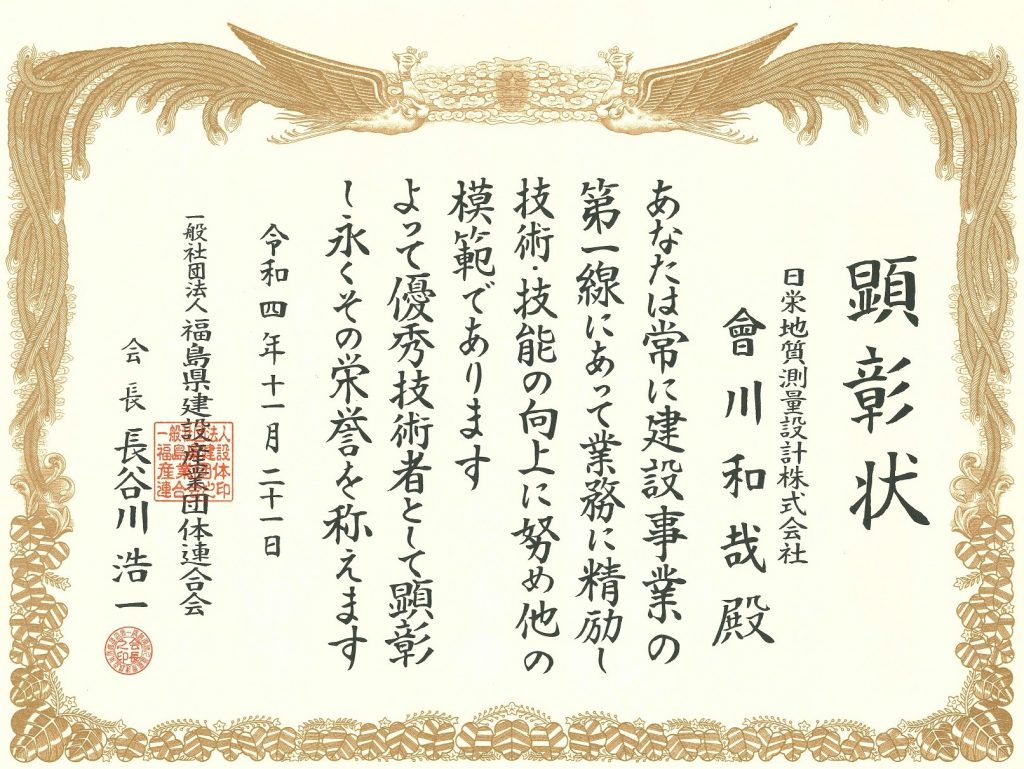 顕彰状
日栄地質測量設計株式会社
會川和哉殿
あなたは常に建設事業の
第一線にあって業務に精励し
技術・技能の向上に努め他の
模範であります
よって優秀技術者として顕彰
し永くその栄誉を称えます
令和四年十一月二十一日
一般社団法人 福島県建設産業団体連合会
会長 長谷川浩一